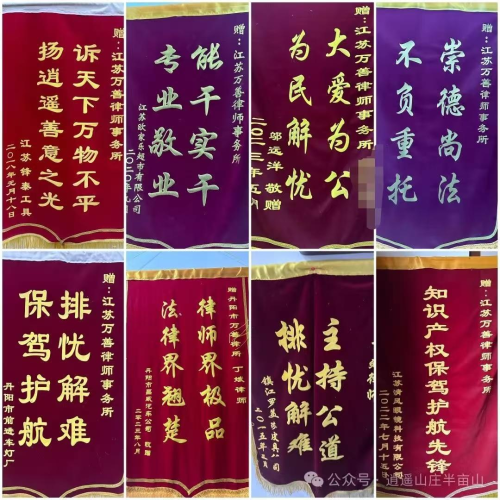 赠:江苏万善律师事务所
诉天下万物不平
扬逍遥善意之光
江苏锋泰工具
二〇一八年元月十八日
赠:江苏万善律师事务所
能干实干
专业敬业
江苏欧家乐超市有限公司
赠:江苏万善律师事务所
大爱为公
为民解忧
邬远洋 敬赠
二〇二三年五月
赠:江苏万善律师事务所
崇德尚法
不负重托
赠:江苏万善律师事务所
排忧解难
保驾护航
丹阳市前进车灯厂
赠 丹阳市万善律所 丁嫔律师
律师界极品
法律界翘楚
二零二三年八月
主持公道
排忧解难
二〇一五年
赠:江苏万善律师事务所
知识产权保驾护航先锋
江苏清风眼镜科技有限公司
二〇二二年七月十五日
公众号·逍遥山庄半亩山